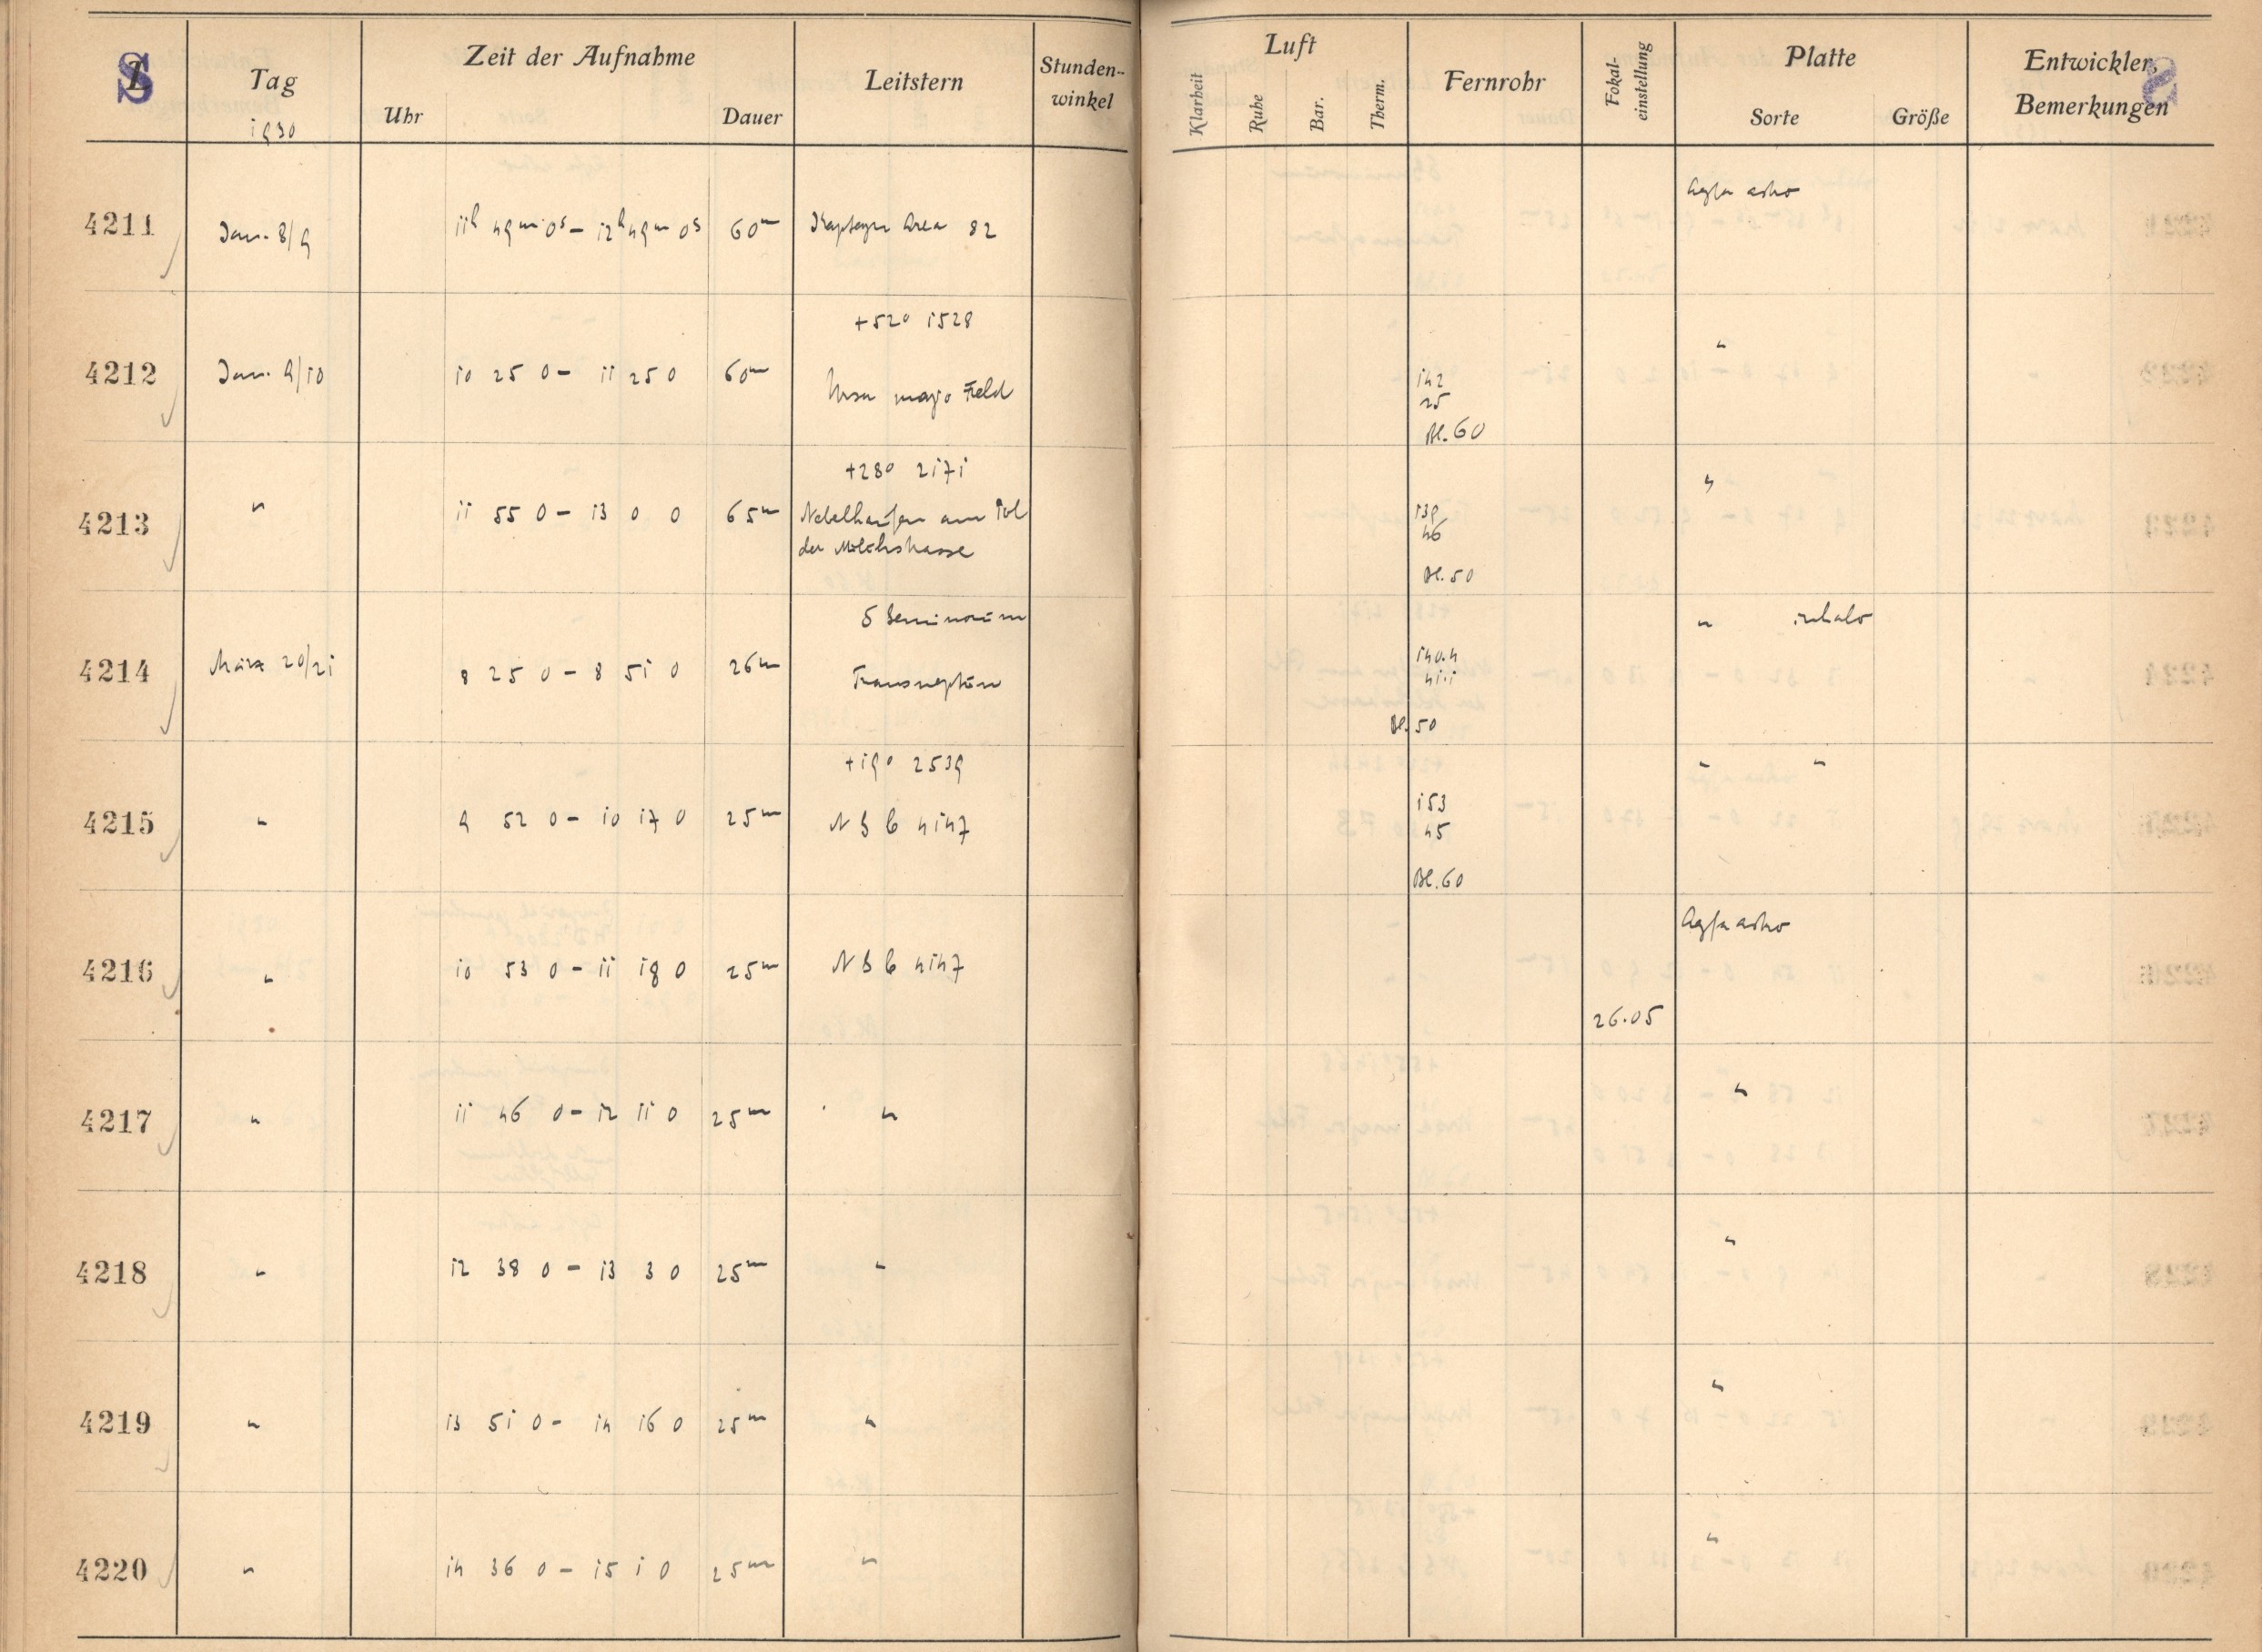 S
Tag
1930
Zeit der Aufnahme
Uhr Dauer
Leitstern
Stunden-
winkel
Luft
Klarheit Ruhe Bar. Therm.
Fernrohr
Fokal-
einstellung
Platte
Sorte Größe
Entwickler,
Bemerkungen
4211 Jan. 8/9 11h 49m 0s – 12h 49m 0s 60m Kapteyn Area 82 Agfa astro
+52° 1528
4212 Jan. 9/10 10 25 0 – 11 25 0 60m Ursa major Feld 142 "
25
Bl. 60
+28° 2171
4213 " 11 55 0 – 13 0 0 65m Nebelhaufen am Pol 139 "
der Milchstrasse 46
Bl. 50
δ Geminorum
4214 März 20/21 8 25 0 – 8 51 0 26m Transneptun 140.4 "
41.1
Bl. 50
+19° 2539
4215 " 9 52 0 – 10 17 0 25m N G C 4147 153 " "
45
Bl. 60
4216 " 10 53 0 – 11 18 0 25m N G C 4147 26.05 Agfa astro
4217 " 11 46 0 – 12 11 0 25m " "
4218 " 12 38 0 – 13 3 0 25m " "
4219 " 13 51 0 – 14 16 0 25m " "
4220 " 14 36 0 – 15 1 0 25m " "